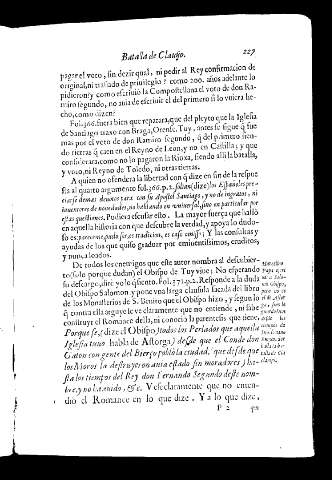 Batalla de Clauijo. 227
pagar el voto, sin dezir qual, ni pedir al Rey confirmacion de
original, ni traslado de priuilegio? como 200. años adelante lo
pidieron? y como escriuiò la Compostellana el voto de don Ra-
miro segundo, no auia de escriuir el del primero si lo vuiera he-
cho, como dizen?
Fol. 366. fuera bien que reparara, que del pleyto que la Iglesia
de Santiago traxo con Braga, Orense, Tuy, antes se sigue q̃ fue
mas por el voto de don Ramiro segundo, q̃ del primero sien-
do tierras q̃ caen en el Reyno de Leon, y no en Castilla; y que
considerara como no lo pagaron la Rioxa, siendo allà la batalla,
y voto, ni Reyno de Toledo, ni otras tierras.
A quien no ofendera la libertad con q̃ dize en fin de la respue
sta al quarto argumento fol. 366. p. 2. saltan (dize) los Españoles pre-
ciarse de mas deuotos para con su Apostol Santiago, y no de ingratos, ni
inuentores de nouedades, no hablando en vniuersal, sino en particular por
estas quellimos. Pudiera escusar esto. La mayor fuerça que hallò
en aquella historia con que descubre la verdad, y apoya lo dudo-
so es: parece me, puede ser, es tradicion, es casi comun; Y las consultas y
ayudas de los que quiso graduar por eminentissimos, eruditos,
y nunca loados.
De todos los enemigos que este autor nombra al descubier-
to (solo porque dudan) el Obispo de Tuy viue; No esperando
su descargo, dirè yo lo q̃ siento. Fol. 371. p. 2. Responde a la duda
del Obispo Salomon, y pone vna larga clausula sacada del libro
de los Monasterios de S. Benito que el Obispo hizo, y segun lo
q̃ contra ella arguye se ve claramente que no entiende, ni sabe
construyr el Romance della, ni conociò la parentesis que tiene,
Porque se (dize el Obispo) todos los Perlados que aquella
Iglesia tuuo habla de Astorga) desde que el Conde don
Gaton con gente del Bierço publò la ciudad, (que desde que
los Moros la destruyeron auia estado sin moradores) ha-
sta los tiempos del Rey don Fernando Segundo deste nom-
bre, y no ha auido, &c. Vese claramente que no enten-
dio el Romance en lo que dize, Ya lo que dize,
P 2